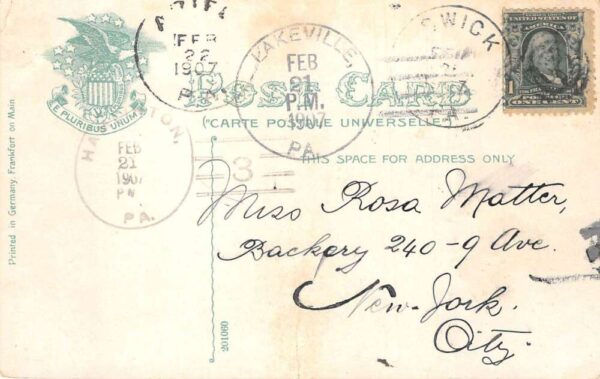 FEB
22
1907
LAKEVILLE,
FEB
21
P.M.
1907
PA.
WICK
UNITED STATES OF AMERICA
1
ONE CENT
E PLURIBUS UNUM
POST CARD
(CARTE POSTALE UNIVERSELLE)
THIS SPACE FOR ADDRESS ONLY
TON,
FEB
21
1907
PM
PA.
3
Miss Rosa Matter,
Backery 240-9 Ave.
New-York.
City.
Printed in Germany, Frankfort on Main
201060